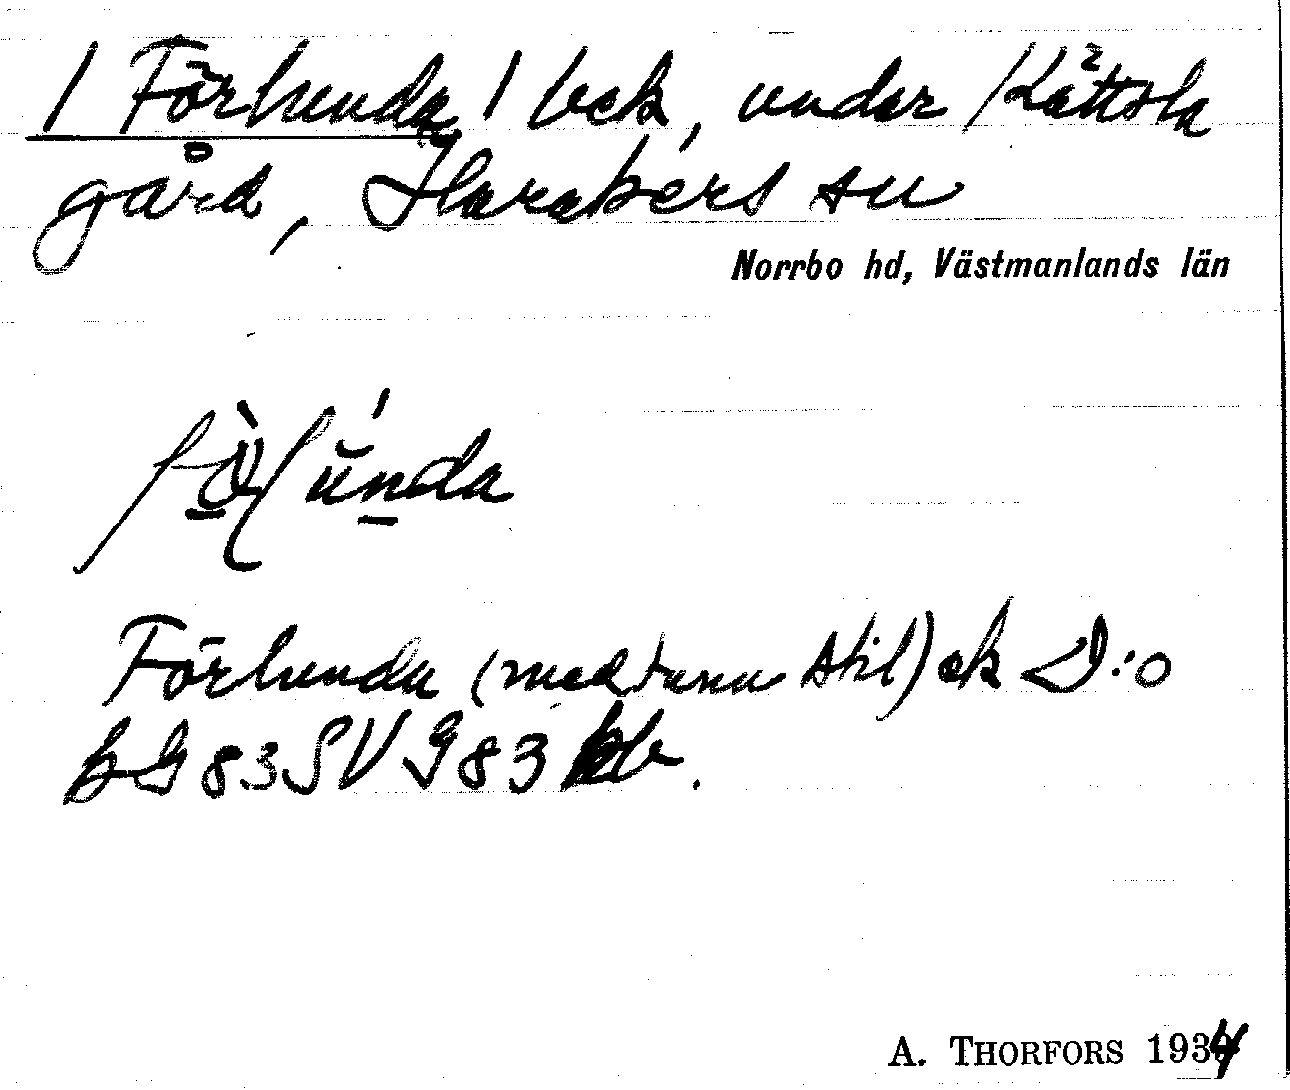 / Förlunda / bek, under / Kättsla
gård, Harakers sn
Norrbo hd, Västmanlands län
Förlunda (med tunn stil) ek D:o
bG 83 SV G 83
A. THORFORS 1934